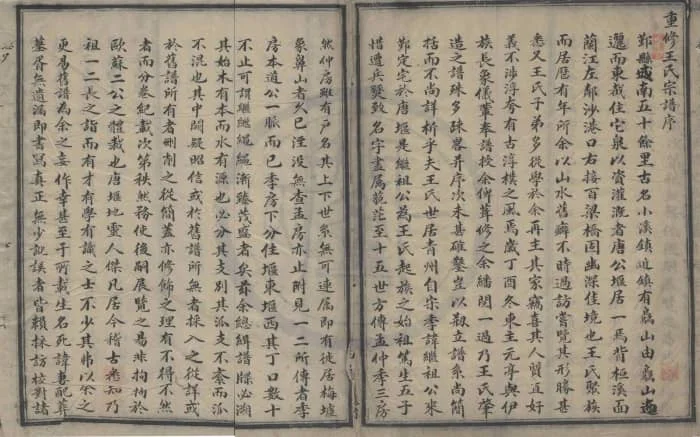 重修王氏宗譜序
鄞縣城南五十餘里古名小溪鎮近鎮有嶯山由嶯山迤
邐而東截住它泉以資灌溉者唐公堰居一焉背桓溪面
蘭江左鄰沙港口右接百梁橋固幽深佳境也王氏聚族
而居歷有年所余以山水舊癖不時過訪嘗覽其形勝甚
悉又王氏子弟多從學於余再主其家竊喜其人質直好
義不涉浮夸有古淳樸之風焉歲丁酉冬東主元亭與伊
族長象儀輩奉譜授余仰葺修之余繙閱一過乃王氏肇
造之譜殊多疎畧弁序次未甚確鑿豈以勒立譜系尚簡
括而不尚詳析乎夫王氏世居青州自宋季諱繼祖公來
鄞定宅於唐堰是繼祖公為王氏起族之始祖篤生五子
惜遭兵燹致名字盡屬茫茫至十五世方傳孟仲季三房
然仲房雖有戶名其上下世系無可連屬即有徙居梅墟
象鼻山者久已湮没無查孟房亦止附見一二所傳者季
房本道公一脈而已季房下分住堰東堰西其丁口數十
不止可謂繼繼繩繩漸臻茂盛者矣茲余總緝譜牒必溯
其始木有本而水有源也必分其支別其派支不紊而派
不混也其中闕疑昭信或於舊譜所無者採入之從詳或
於舊譜所有者刪削之從簡蓋亦修飾之理有不得不然
者而分卷紀載次第秩然務使後嗣展覽之易非拘拘於
歐蘇二公之體裁也唐堰地靈人傑凡居今稽古悉知乃
祖一二長之詣而有才有學有識之士不少其弗以余之
更易舊譜為余之妄作幸甚至于所載生名死諱妻配葬
墓胥無遺漏即書寫真正無少訛誤者皆賴採訪校對諸